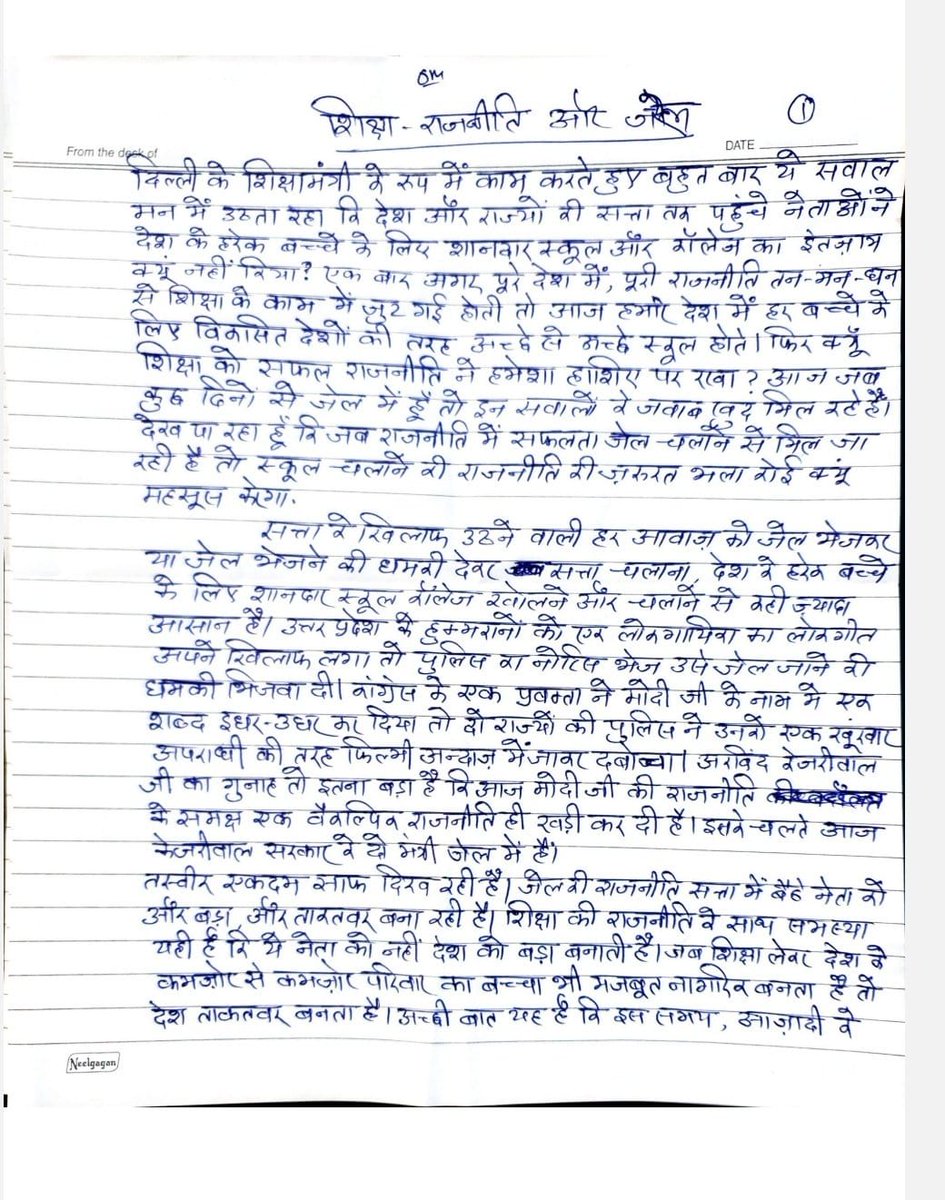 ॐ
शिक्षा - राजनीति और जेल
①
From the desk of
DATE
दिल्ली के शिक्षामंत्री के रूप में काम करते हुए बहुत बार ये सवाल
मन में उठता रहा कि देश और राज्यों की सत्ता तक पहुंचे नेताओं ने
देश के हरेक बच्चे के लिए शानदार स्कूल और कॉलेज का इंतज़ाम
क्यूं नहीं किया? एक बार अगर पूरे देश में, पूरी राजनीति तन-मन-धन
से शिक्षा के काम में जुट गई होती तो आज हमारे देश में हर बच्चे के
लिए विकसित देशों की तरह अच्छे से अच्छे स्कूल होते। फिर क्यूँ
शिक्षा को सफल राजनीति ने हमेशा हाशिए पर रखा? आज जब
कुछ दिनों से जेल में हूँ तो इन सवालों के जवाब खुद मिल रहे हैं।
देख पा रहा हूँ कि जब राजनीति में सफलता जेल चलाने से मिल जा
रही है तो स्कूल चलाने की राजनीति की ज़रुरत भला कोई क्यूं
महसूस करेगा.
सत्ता के खिलाफ उठने वाली हर आवाज़ को जेल भेजकर
या जेल भेजने की धमकी देकर सत्ता चलाना, देश के हरेक बच्चे
के लिए शानदार स्कूल कॉलेज खोलने और चलाने से कहीं ज़्यादा
आसान है। उत्तर प्रदेश के हुक्मरानों को एक लोकगायिका का लोकगीत
अपने खिलाफ लगा तो पुलिस का नोटिस भेज उसे जेल जाने की
धमकी भिजवा दी। कांग्रेस के एक प्रवक्ता ने मोदी जी के नाम में एक
शब्द इधर-उधर कर दिया तो दो राज्यों की पुलिस ने उनको एक खूंखार
अपराधी की तरह फिल्मी अन्दाज़ में जाकर दबोचा। अरविंद केजरीवाल
जी का गुनाह तो इतना बड़ा है कि आज मोदी जी की राजनीति
के समक्ष एक वैकल्पिक राजनीति ही खड़ी कर दी है। इसके चलते आज
केजरीवाल सरकार के दो मंत्री जेल में हैं।
तस्वीर एकदम साफ दिख रही है। जेल की राजनीति सत्ता में बैठे नेता को
और बड़ा और ताकतवर बना रही है। शिक्षा की राजनीति के साथ समस्या
यही है कि ये नेता को नहीं देश को बड़ा बनाती है। जब शिक्षा लेकर देश के
कमजोर से कमज़ोर परिवार का बच्चा भी मजबूत नागरिक बनता है तो
देश ताकतवर बनता है। अच्छी बात यह है कि इस समय, आज़ादी के
Neelgagan